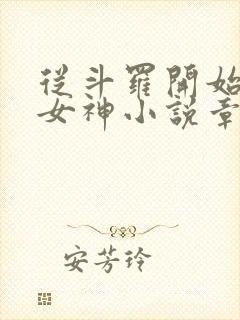 從斗羅開始
女神小説章
安芳玲